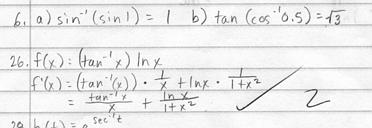 6. a) sin⁻¹(sin 1) = 1 b) tan(cos⁻¹0.5) = √3
26. f(x) = (tan⁻¹x) ln x
f'(x) = (tan⁻¹(x)) · 1/x + ln x · 1/(1+x²)
= tan⁻¹x/x + ln x/(1+x²) ✓ 2
29. h(t) = e^(sec⁻¹t)